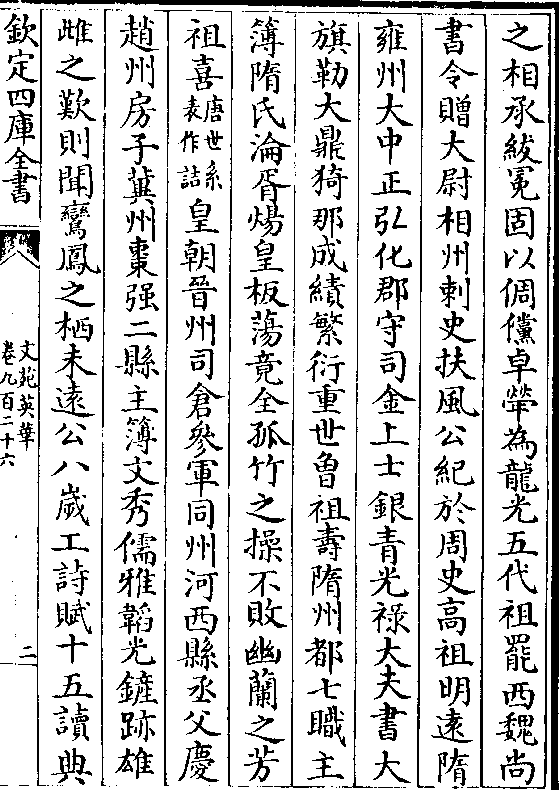 之相承紱冕固以倜儻卓犖為龍光五代祖罷西魏尚
書令贈大尉相州刺史扶風公紀於周史高祖明遠隋
雍州大中正弘化郡守司金上士銀青光祿大夫書大
旗勒大鼎猗那成績繁衍重世魯祖壽隋州都七職主
簿隋氏淪胥煬皇板蕩竟全孤竹之操不敗幽蘭之芳
祖喜唐世系表作詰皇朝晉州司倉參軍同州河西縣丞父慶
趙州房子冀州棗强二縣主簿文秀儒雅韜光鏟跡雄
雌之歎則聞鸞鳳之栖未遠公八歲工詩賦十五讀典
欽定四庫全書
文苑英華
卷九百二十六
二